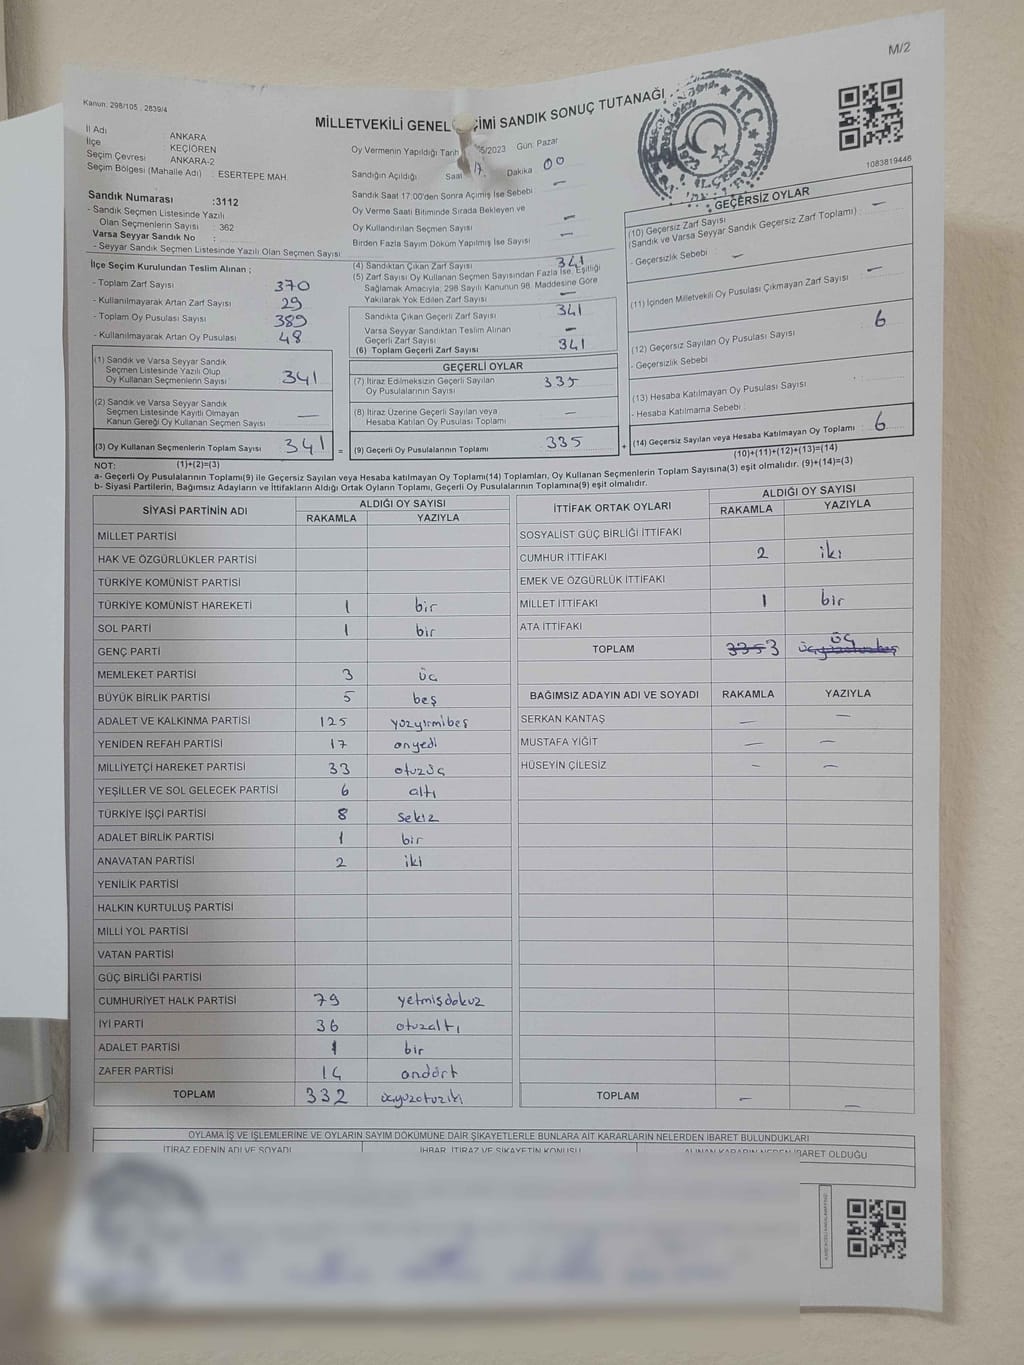 M/2
Kanun: 298/105 , 2839/4
MİLLETVEKİLİ GENEL ÇİMİ SANDIK SONUÇ TUTANAĞI
1083819446
İl Adı : ANKARA
İlçe : KEÇİÖREN
Seçim Çevresi : ANKARA-2
Seçim Bölgesi (Mahalle Adı) : ESERTEPE MAH.
Sandık Numarası :3112
- Sandık Seçmen Listesinde Yazılı
Olan Seçmenlerin Sayısı : 362
Varsa Seyyar Sandık No :
- Seyyar Sandık Seçmen Listesinde Yazılı Olan Seçmen Sayısı
İlçe Seçim Kurulundan Teslim Alınan ;
- Toplam Zarf Sayısı 370
- Kullanılmayarak Artan Zarf Sayısı 29
- Toplam Oy Pusulası Sayısı 389
- Kullanılmayarak Artan Oy Pusulası 48
(1) Sandık ve Varsa Seyyar Sandık
Seçmen Listesinde Yazılı Olup
Oy Kullanan Seçmenlerin Sayısı 341
(2) Sandık ve Varsa Seyyar Sandık
Seçmen Listesinde Kayıtlı Olmayan
Kanun Gereği Oy Kullanan Seçmen Sayısı —
(3) Oy Kullanan Seçmenlerin Toplam Sayısı 341
(1)+(2)=(3)
Oy Vermenin Yapıldığı Tarih 5/2023 Gün: Pazar
Sandığın Açıldığı Saat 17 Dakika 00
Sandık Saat 17:00'den Sonra Açımış İse Sebebi —
Oy Verme Saati Bitiminde Sırada Bekleyen ve
Oy Kullandırılan Seçmen Sayısı —
Birden Fazla Sayım Döküm Yapılmış İse Sayısı —
(4) Sandıktan Çıkan Zarf Sayısı 341
(5) Zarf Sayısı Oy Kullanan Seçmen Sayısından Fazla İse, Eşitliği
Sağlamak Amacıyla; 298 Sayılı Kanunun 98. Maddesine Göre
Yakılarak Yok Edilen Zarf Sayısı —
Sandıkta Çıkan Geçerli Zarf Sayısı 341
Varsa Seyyar Sandıktan Teslim Alınan
Geçerli Zarf Sayısı —
(6) Toplam Geçerli Zarf Sayısı 341
GEÇERLİ OYLAR
(7) İtiraz Edilmeksizin Geçerli Sayılan
Oy Pusulalarının Sayısı 335
(8) İtiraz Üzerine Geçerli Sayılan veya
Hesaba Katılan Oy Pusulası Toplamı —
= (9) Geçerli Oy Pusulalarının Toplamı 335
GEÇERSİZ OYLAR
(10) Geçersiz Zarf Sayısı
(Sandık ve Varsa Seyyar Sandık Geçersiz Zarf Toplamı) : —
- Geçersizlik Sebebi : —
(11) İçinden Milletvekili Oy Pusulası Çıkmayan Zarf Sayısı —
(12) Geçersiz Sayılan Oy Pusulası Sayısı 6
- Geçersizlik Sebebi
(13) Hesaba Katılmayan Oy Pusulası Sayısı :
- Hesaba Katılmama Sebebi :
+ (14) Geçersiz Sayılan veya Hesaba Katılmayan Oy Toplamı 6
(10)+(11)+(12)+(13)=(14)
NOT:
a- Geçerli Oy Pusulalarının Toplamı(9) ile Geçersiz Sayılan veya Hesaba katılmayan Oy Toplamı(14) Toplamları, Oy Kullanan Seçmenlerin Toplam Sayısına(3) eşit olmalıdır. (9)+(14)=(3)
b- Siyasi Partilerin, Bağımsız Adayların ve İttifakların Aldığı Ortak Oyların Toplamı, Geçerli Oy Pusulalarının Toplamına(9) eşit olmalıdır.
SİYASİ PARTİNİN ADI ALDIĞI OY SAYISI
RAKAMLA YAZIYLA
MİLLET PARTİSİ
HAK VE ÖZGÜRLÜKLER PARTİSİ
TÜRKİYE KOMÜNİST PARTİSİ
TÜRKİYE KOMÜNİST HAREKETİ 1 bir
SOL PARTİ 1 bir
GENÇ PARTİ
MEMLEKET PARTİSİ 3 üç
BÜYÜK BİRLİK PARTİSİ 5 beş
ADALET VE KALKINMA PARTİSİ 125 yüzyirmibeş
YENİDEN REFAH PARTİSİ 17 onyedi
MİLLİYETÇİ HAREKET PARTİSİ 33 otuzüç
YEŞİLLER VE SOL GELECEK PARTİSİ 6 altı
TÜRKİYE İŞÇİ PARTİSİ 8 sekiz
ADALET BİRLİK PARTİSİ 1 bir
ANAVATAN PARTİSİ 2 iki
YENİLİK PARTİSİ
HALKIN KURTULUŞ PARTİSİ
MİLLİ YOL PARTİSİ
VATAN PARTİSİ
GÜÇ BİRLİĞİ PARTİSİ
CUMHURİYET HALK PARTİSİ 79 yetmişdokuz
İYİ PARTİ 36 otuzaltı
ADALET PARTİSİ 1 bir
ZAFER PARTİSİ 14 ondört
TOPLAM 332 üçyüzotuziki
İTTİFAK ORTAK OYLARI ALDIĞI OY SAYISI
RAKAMLA YAZIYLA
SOSYALİST GÜÇ BİRLİĞİ İTTİFAKI
CUMHUR İTTİFAKI 2 iki
EMEK VE ÖZGÜRLÜK İTTİFAKI
MİLLET İTTİFAKI 1 bir
ATA İTTİFAKI
TOPLAM 335 3 üç
BAĞIMSIZ ADAYIN ADI VE SOYADI RAKAMLA YAZIYLA
SERKAN KANTAŞ — —
MUSTAFA YİĞİT — —
HÜSEYİN ÇİLESİZ — —
TOPLAM — —
OYLAMA İŞ VE İŞLEMLERİNE VE OYLARIN SAYIM DÖKÜMÜNE DAİR ŞİKAYETLERLE BUNLARA AİT KARARLARIN NELERDEN İBARET BULUNDUKLARI
İTİRAZ EDENİN ADI VE SOYADI İHBAR, İTİRAZ VE ŞİKAYETİN KONUSU ALINAN KARARIN NEDEN İBARET OLDUĞU